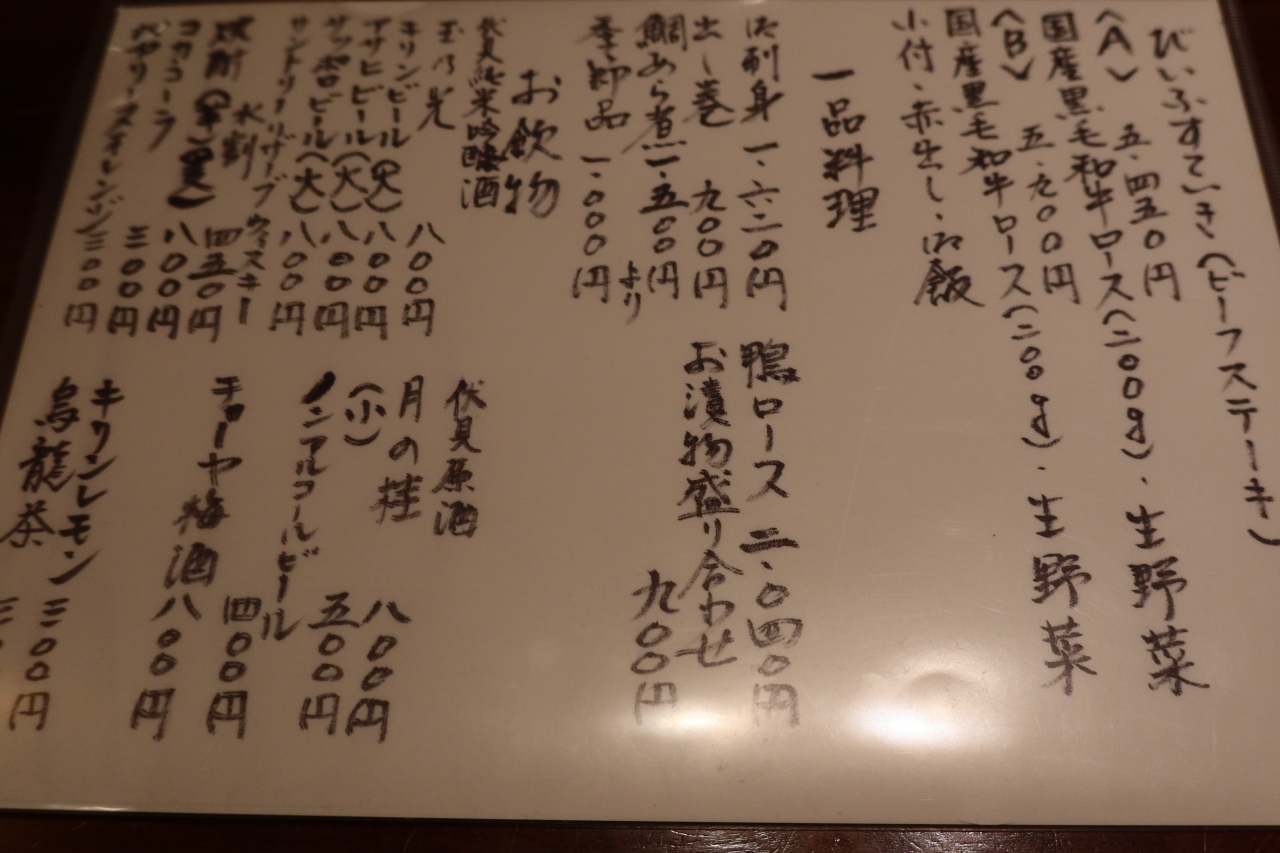 びいふすてーき（ビーフステーキ）
〈A〉 五.四五〇円
国産黒毛和牛ロース（二〇〇g）.生野菜
〈B〉 五.九〇〇円
国産黒毛和牛ロース（二〇〇g）.生野菜
小付.赤出し.御飯
一品料理
御刺身 一.六二〇円
鴨ロース 二.〇四〇円
出し巻 九〇〇円
お漬物盛り合わせ 九〇〇円
鯛あら煮 一.五〇〇円
季節品 一.〇〇〇円より
お飲物
伏見純米吟醸酒
玉乃光 八〇〇円
伏見原酒
月の桂 八〇〇円
キリンビール（大） 八〇〇円
（小） 五〇〇円
アサヒビール（大） 八〇〇円
サッポロビール（大） 八〇〇円
ノンアルコールビール 四〇〇円
サントリーリザーブウィスキー
水割 四五〇円
チョーヤ梅酒 八〇〇円
焼酎 八〇〇円
コカコーラ 三〇〇円
キリンレモン 三〇〇円
バヤリースオレンジ 三〇〇円
烏龍茶